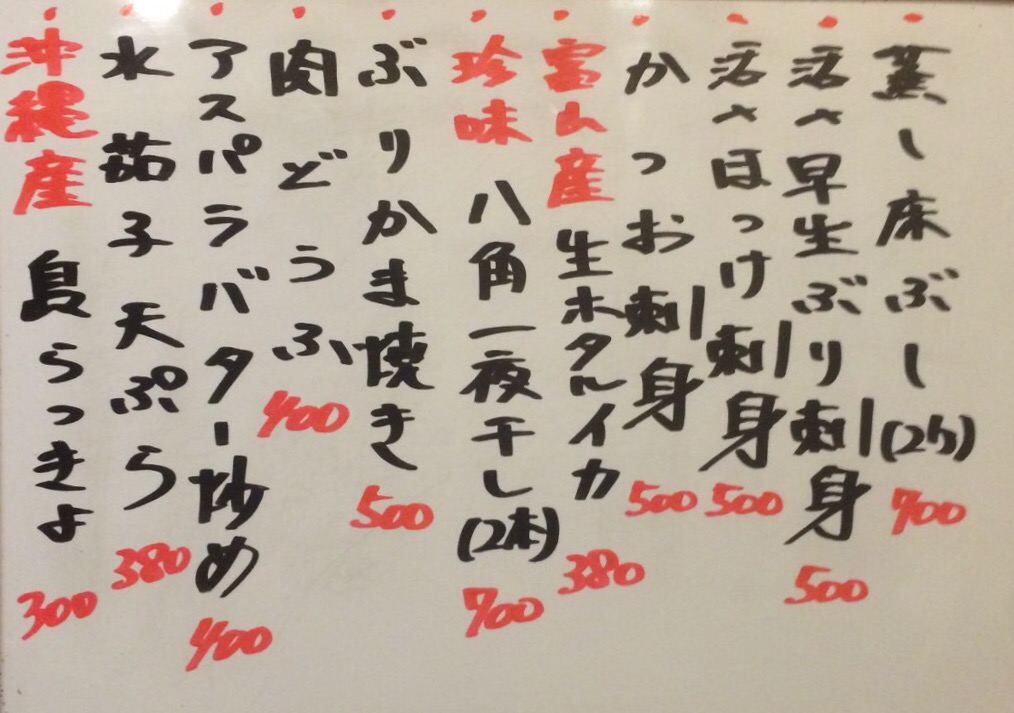 蒸し床ぶし(2ケ) 700
活〆早生ぶり刺身 500
活〆ほっけ刺身 500
かつお刺身 500
富山産 生ホタルイカ 380
珍味 八角一夜干し(2本) 700
ぶりかま焼き 500
肉どうふ 400
アスパラバター炒め 400
水茄子天ぷら 380
沖縄産 島らっきょ 300